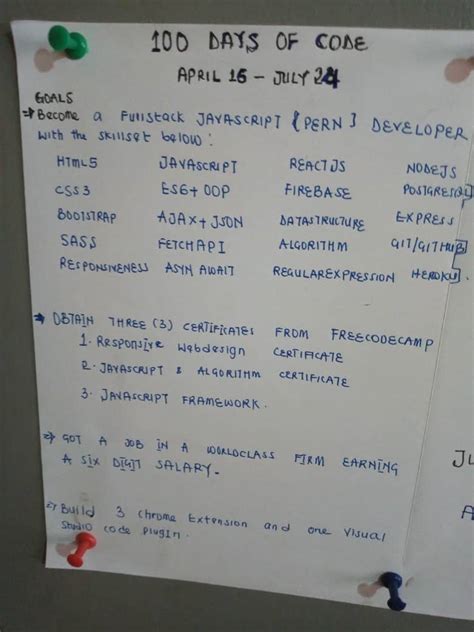 100 DAYS OF CODE
APRIL 16 - JULY 24
GOALS
⇒ Become a Fullstack JAVASCRIPT {PERN} DEVELOPER
with the skillset below:
HTML5 JAVASCRIPT REACTJS NODEJS
CSS3 ES6+OOP FIREBASE POSTGRESQL
BOOTSTRAP AJAX+JSON DATASTRUCTURE EXPRESS
SASS FETCHAPI ALGORITHM GIT/GITHUB
RESPONSIVENESS ASYN AWAIT REGULAREXPRESSION HEROKU
⇒ OBTAIN THREE (3) CERTIFICATES FROM FREECODECAMP
1. Responsive Webdesign CERTIFICATE
2. JAVASCRIPT & ALGORITHM CERTIFICATE
3. JAVASCRIPT FRAMEWORK.
⇒ GOT A JOB IN A WORLDCLASS FIRM EARNING
A SIX DIGIT SALARY.
⇒ Build 3 Chrome Extension and one Visual
Studio code plugin.
JU
A